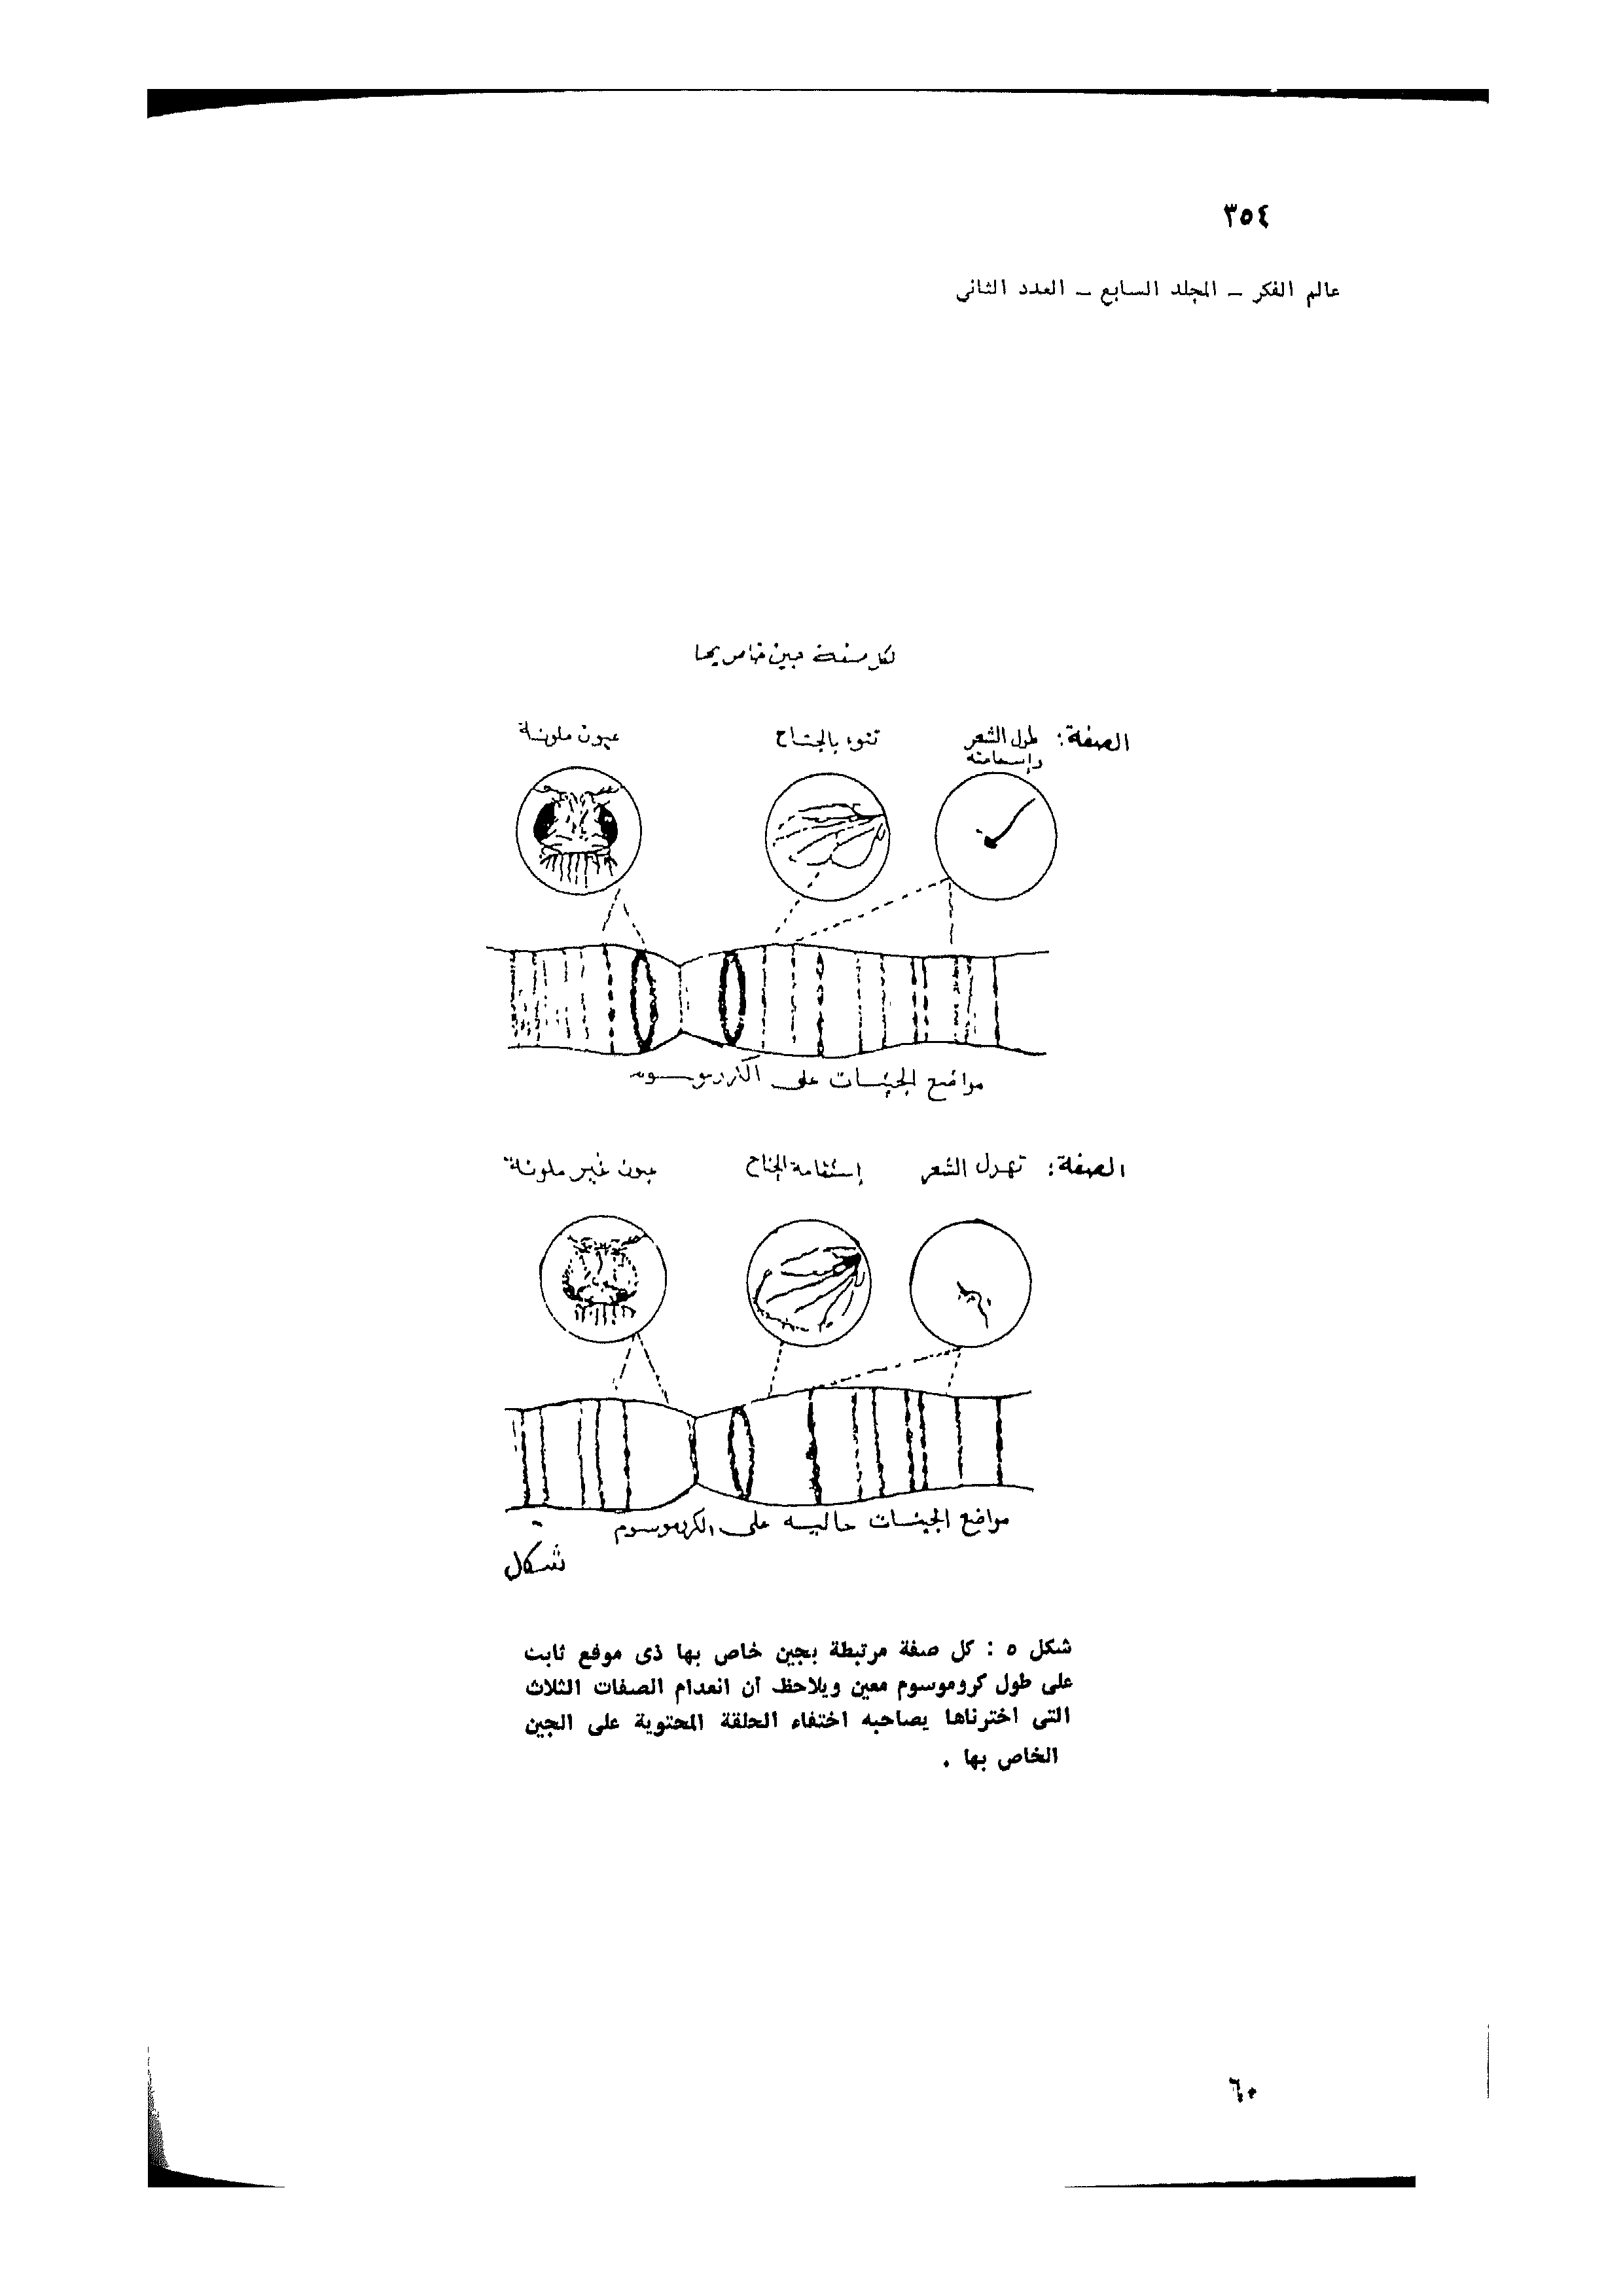 ٣٥٤
عالم الفكر – المجلد السابع – العدد الثاني
لكل صفة جين خاص بها
الصفة: طول الشعر وإستقامته
نتوء بالجناح
عيون ملونة
مواضع الجينات على الكروموسوم
الصفة: تهدل الشعر
إستقامة الجناح
عيون غير ملونة
مواضع الجينات خاليه على الكروموسوم
شكل
شكل ٥ : كل صفة مرتبطة بجين خاص بها ذى موقع ثابت
على طول كروموسوم معين ويلاحظ أن انعدام الصفات الثلاث
التى اخترناها يصاحبه اختفاء الحلقة المحتوية على الجين
الخاص بها .
٦٠